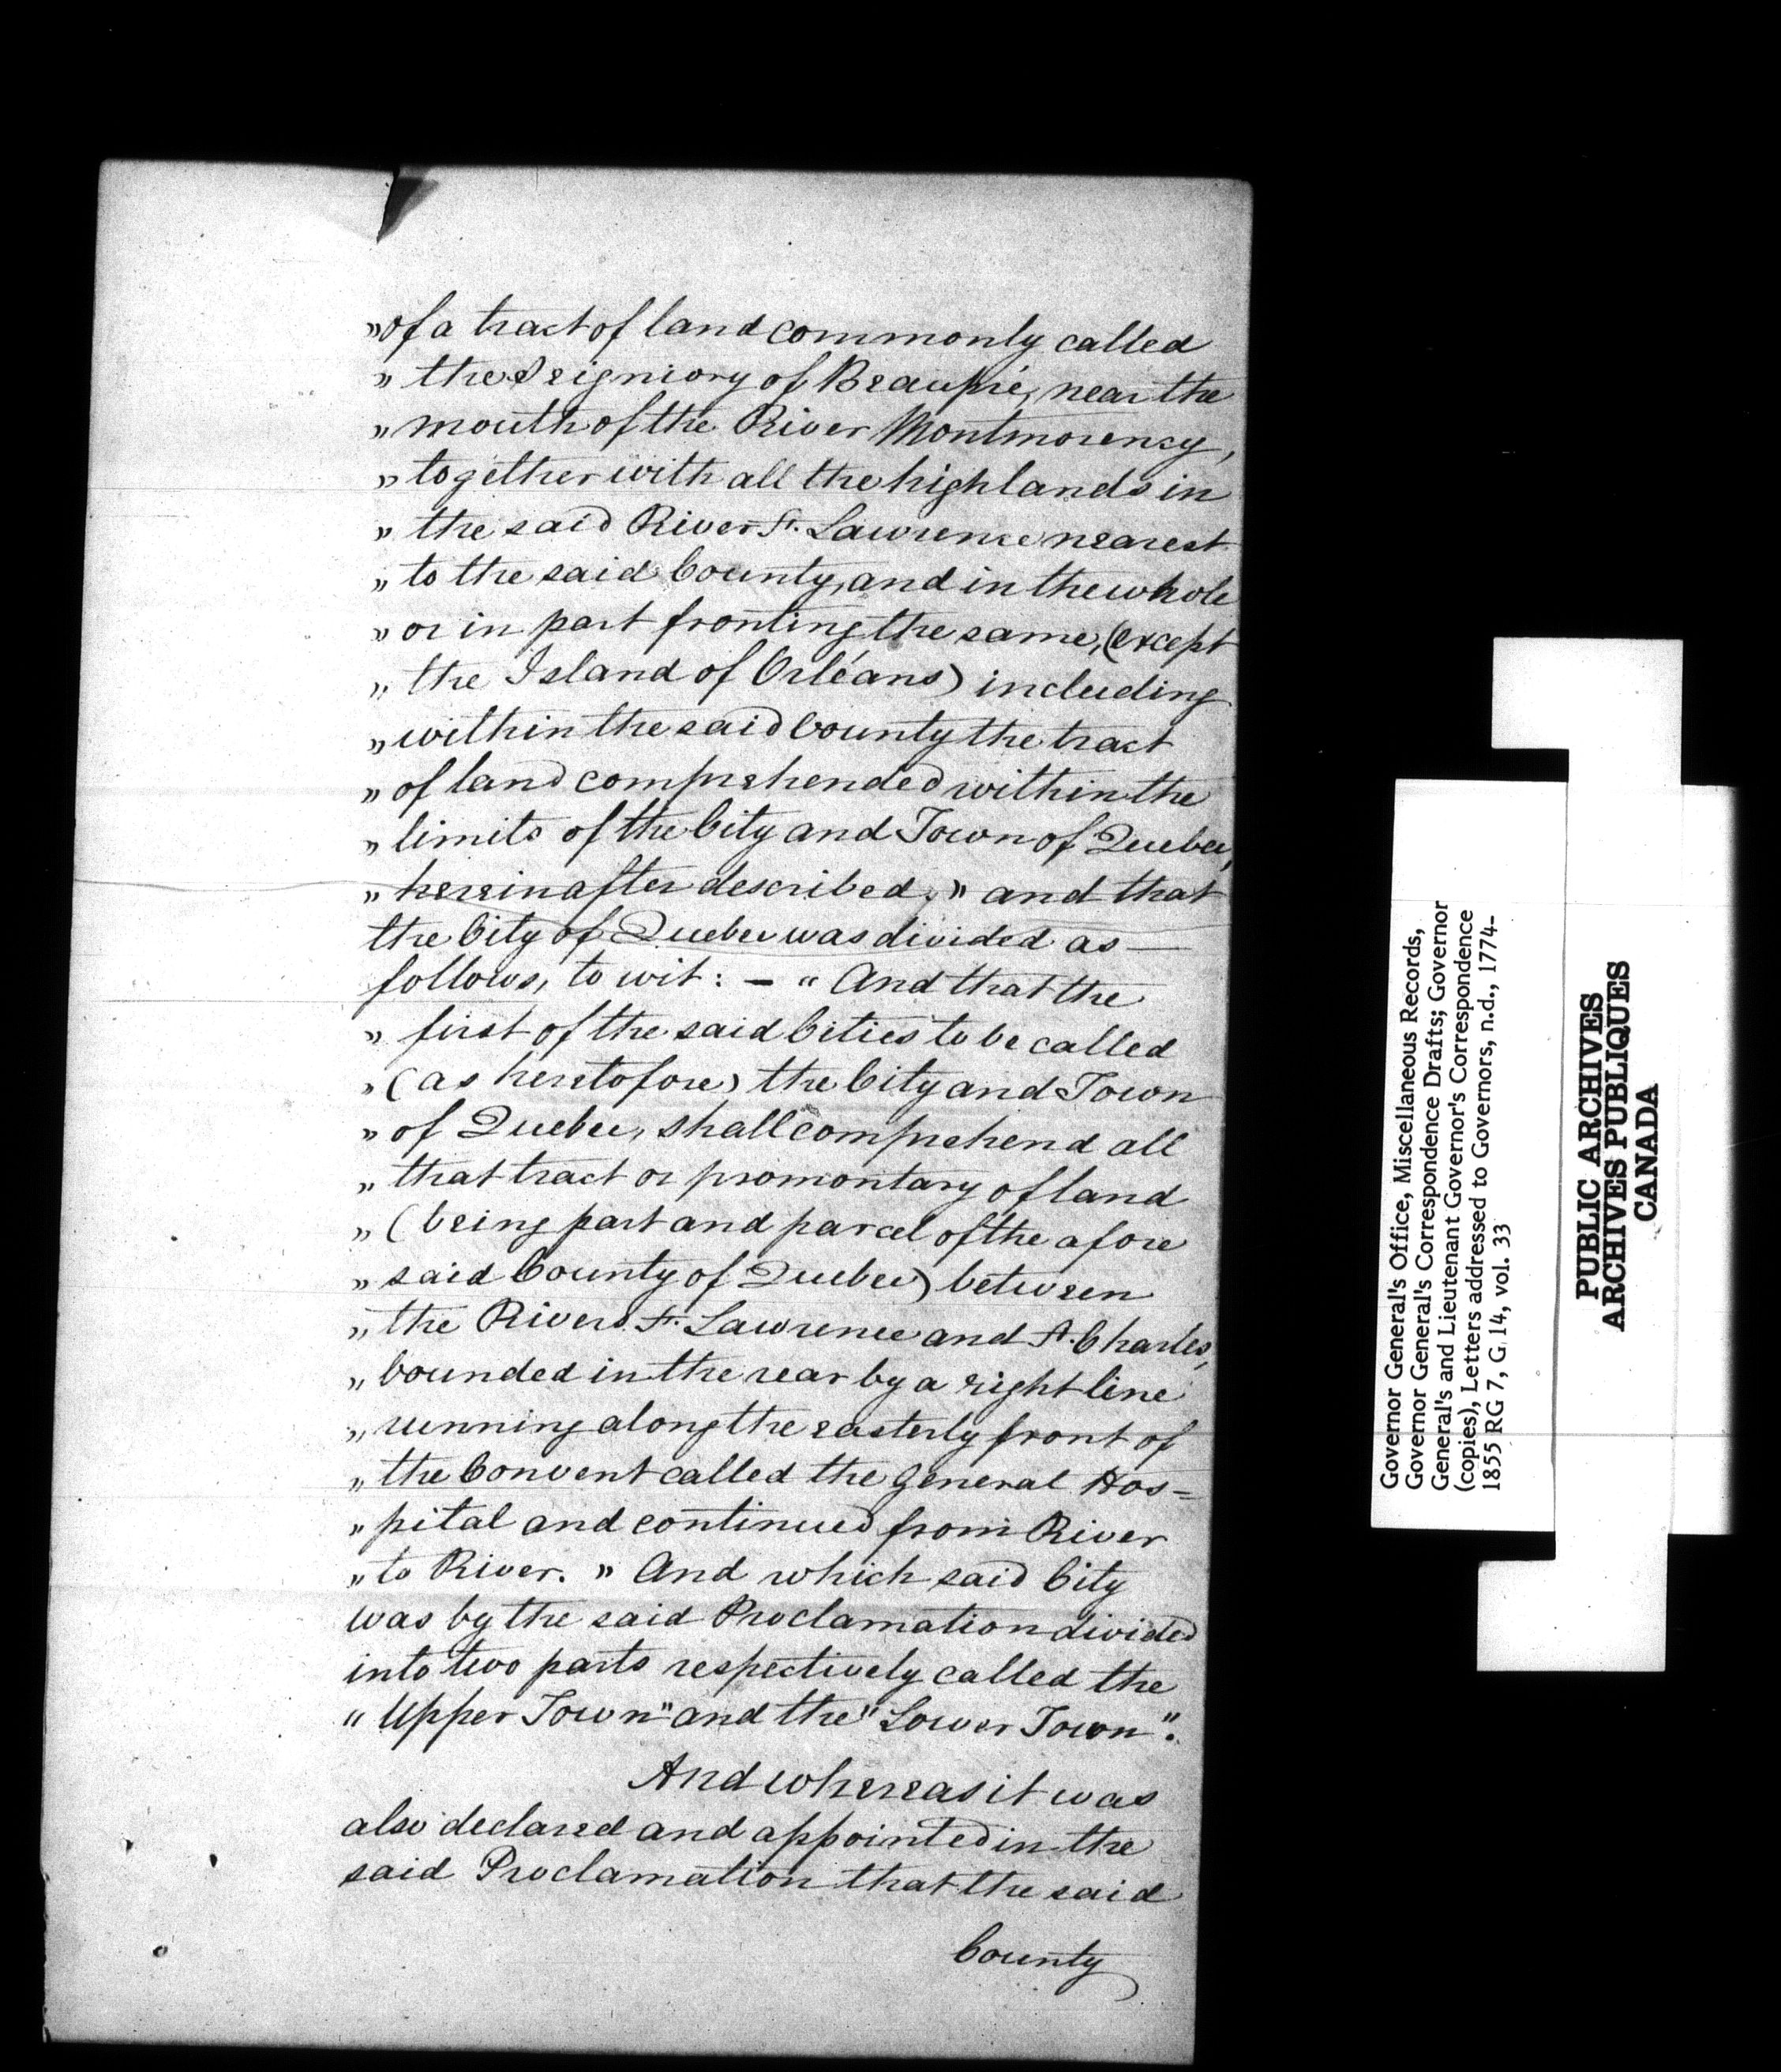 „ of a tract of land commonly called
„ the Seigniory of Beaupré, near the
„ mouth of the River Montmorency,
„ together with all the highlands in
„ the said River St. Lawrence nearest
„ to the said County, and in the whole
„ or in part fronting the same, (except
„ the Island of Orléans) including
„ within the said County the tract
„ of land comprehended within the
„ limits of the City and Town of Quebec,
„ hereinafter described; " and that
the City of Quebec was divided as —
follows, to wit: — " And that the
„ first of the said Cities to be called
„ (as heretofore) the City and Town
„ of Quebec, shall comprehend all
„ that tract or promontary of land
„ (being part and parcel of the afore
„ said County of Quebec) between
„ the Rivers St. Lawrence and St. Charles,
„ bounded in the rear by a right line
„ running along the easterly front of
„ the Convent called the General Hos=
„ pital and continued from River
„ to River. " And which said City
was by the said Proclamation divided
into two parts respectively called the
" Upper Town" and the "Lower Town".
And whereas it was
also declared and appointed in the
said Proclamation that the said
County
Governor General's Office, Miscellaneous Records,
Governor General's Correspondence Drafts; Governor
General's and Lieutenant Governor's Correspondence
(copies), Letters addressed to Governors, n.d., 1774-
1855 RG 7, G 14, vol. 33
PUBLIC ARCHIVES
ARCHIVES PUBLIQUES
CANADA